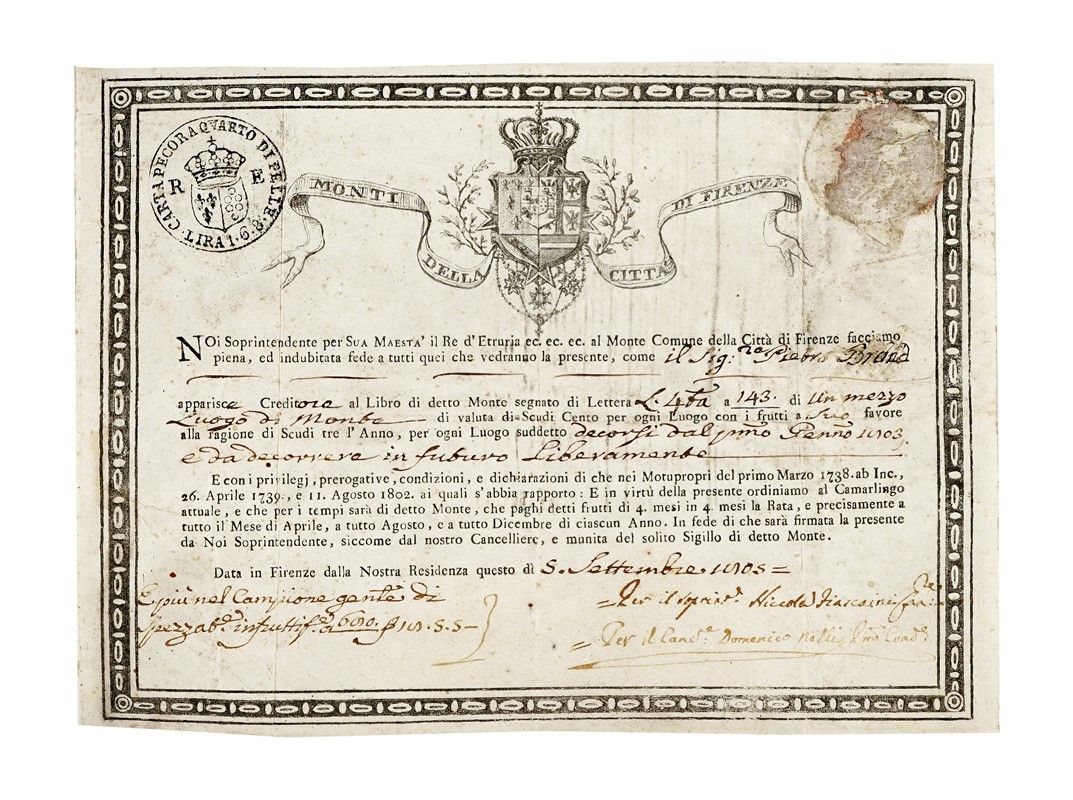 CARTAPECORA QVARTO DI PELLE. LIRA 1.6.8.
R E
MONTI DELLA CITTA DI FIRENZE.
NOi Soprintendente per SUA MAESTA' il Re d'Etruria ec. ec. ec. al Monte Comune della Città di Firenze facciamo
piena, ed indubitata fede a tutti quei che vedranno la presente, come il Sig:re Pietro
apparisce Creditore al Libro di detto Monte segnato di Lettera L. a 143. di Un mezzo
Luogo di Monte di valuta di Scudi Cento per ogni Luogo con i frutti a Suo favore
alla ragione di Scudi tre l'Anno, per ogni Luogo suddetto decorsi dal pmo Genno 1803
e da decorrere in futuro Liberamente
E con i privilegj, prerogative, condizioni, e dichiarazioni di che nei Motupropri del primo Marzo 1738. ab Inc.,
26. Aprile 1739., e 11. Agosto 1802. ai quali s'abbia rapporto: E in virtù della presente ordiniamo al Camarlingo
attuale, e che per i tempi sarà di detto Monte, che paghi detti frutti di 4. mesi in 4. mesi la Rata, e precisamente a
tutto il Mese di Aprile, a tutto Agosto, e a tutto Dicembre di ciascun Anno. In fede di che sarà firmata la presente
da Noi Soprintendente, siccome dal nostro Cancelliere, e munita del solito Sigillo di detto Monte.
Data in Firenze dalla Nostra Residenza questo dì 5. Settembre 1803 =
E più nel Campione genle di
= Per il Niccola
= Per il Domenico